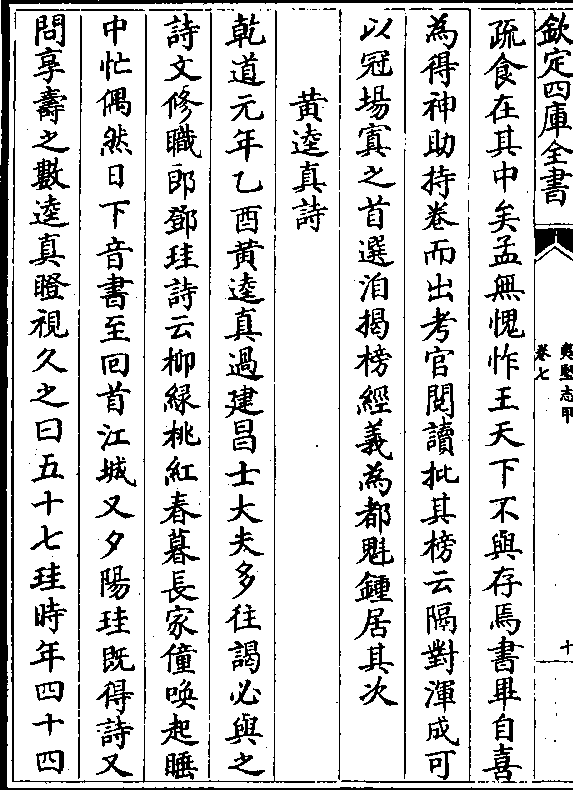 欽定四庫全書
夷堅志甲
卷七
十
疏食在其中矣孟無愧怍王天下不與存焉書畢自喜
為得神助持卷而出考官閱讀批其榜云隔對渾成可
以冠場寘之首選洎揭榜經義為都魁鍾居其次
黃逵真詩
乾道元年乙酉黃逵真過建昌士大夫多往謁必與之
詩文修職郎鄧珪詩云柳綠桃紅春暮長家僮喚起睡
中忙偶然日下音書至回首江城又夕陽珪既得詩又
問享壽之數逵真瞪視久之曰五十七珪時年四十四